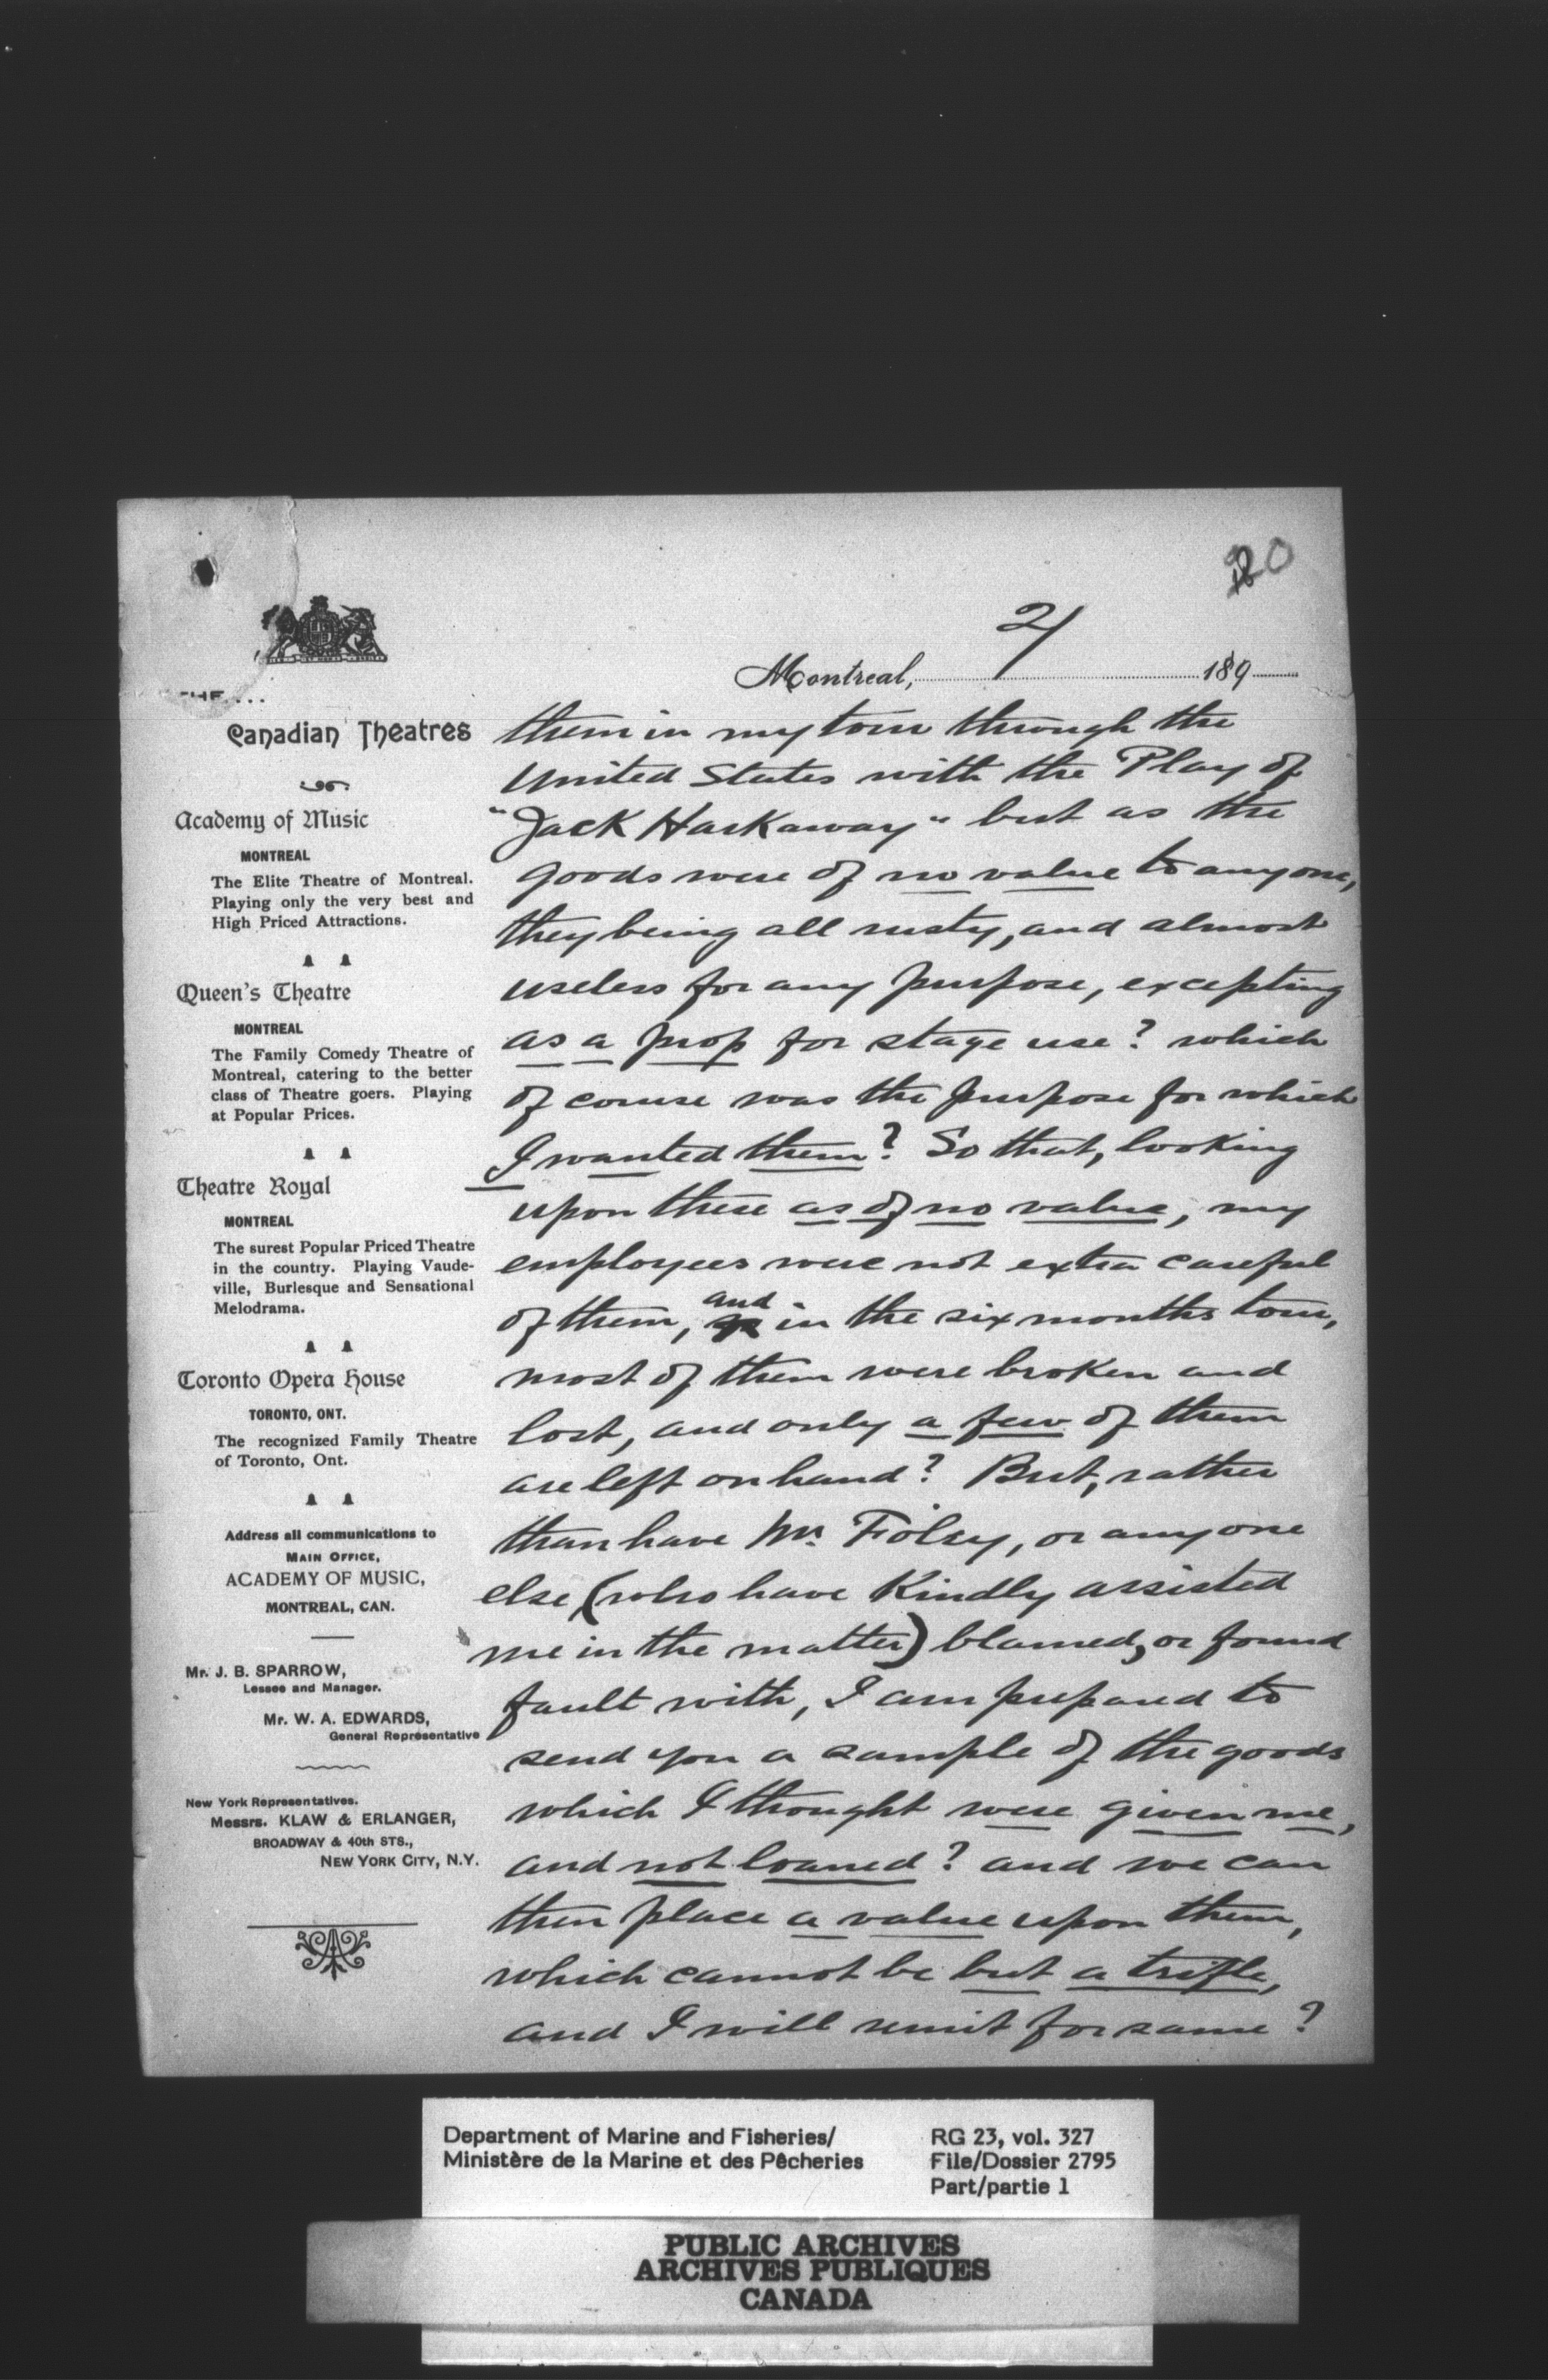 20
2/
Montreal, 189
THE...
Canadian Theatres
Academy of Music
MONTREAL
The Elite Theatre of Montreal.
Playing only the very best and
High Priced Attractions.
Queen's Theatre
MONTREAL
The Family Comedy Theatre of
Montreal, catering to the better
class of Theatre goers. Playing
at Popular Prices.
Theatre Royal
MONTREAL
The surest Popular Priced Theatre
in the country. Playing Vaude-
ville, Burlesque and Sensational
Melodrama.
Toronto Opera House
TORONTO, ONT.
The recognized Family Theatre
of Toronto, Ont.
Address all communications to
MAIN OFFICE,
ACADEMY OF MUSIC,
MONTREAL, CAN.
Mr. J. B. SPARROW,
Lessee and Manager.
Mr. W. A. EDWARDS,
General Representative
New York Representatives.
Messrs. KLAW & ERLANGER,
BROADWAY & 40th STS.,
NEW YORK CITY, N.Y.
them in my tour through the
United States with the Play of
"Jack Harkaway" but as the
goods were of no value to anyone,
they being all rusty, and almost
useless for any purpose, excepting
as a prop for stage use? which
of course was the purpose for which
I wanted them? So that, looking
upon these as of no value, my
employees were not extra careful
of them, and in the six months tour,
most of them were broken and
lost, and only a few of them
are left on hand? But, rather
than have Mr. Folsy, or any one
else (who have Kindly assisted
me in the matter) blamed, or found
fault with, I am prepared to
send you a sample of the goods
which I thought were given me,
and not loaned? and we can
then place a value upon them,
which cannot be but a trifle,
and I will remit for same?
Department of Marine and Fisheries/
Ministère de la Marine et des Pêcheries
RG 23, vol. 327
File/Dossier 2795
Part/partie 1
PUBLIC ARCHIVES
ARCHIVES PUBLIQUES
CANADA